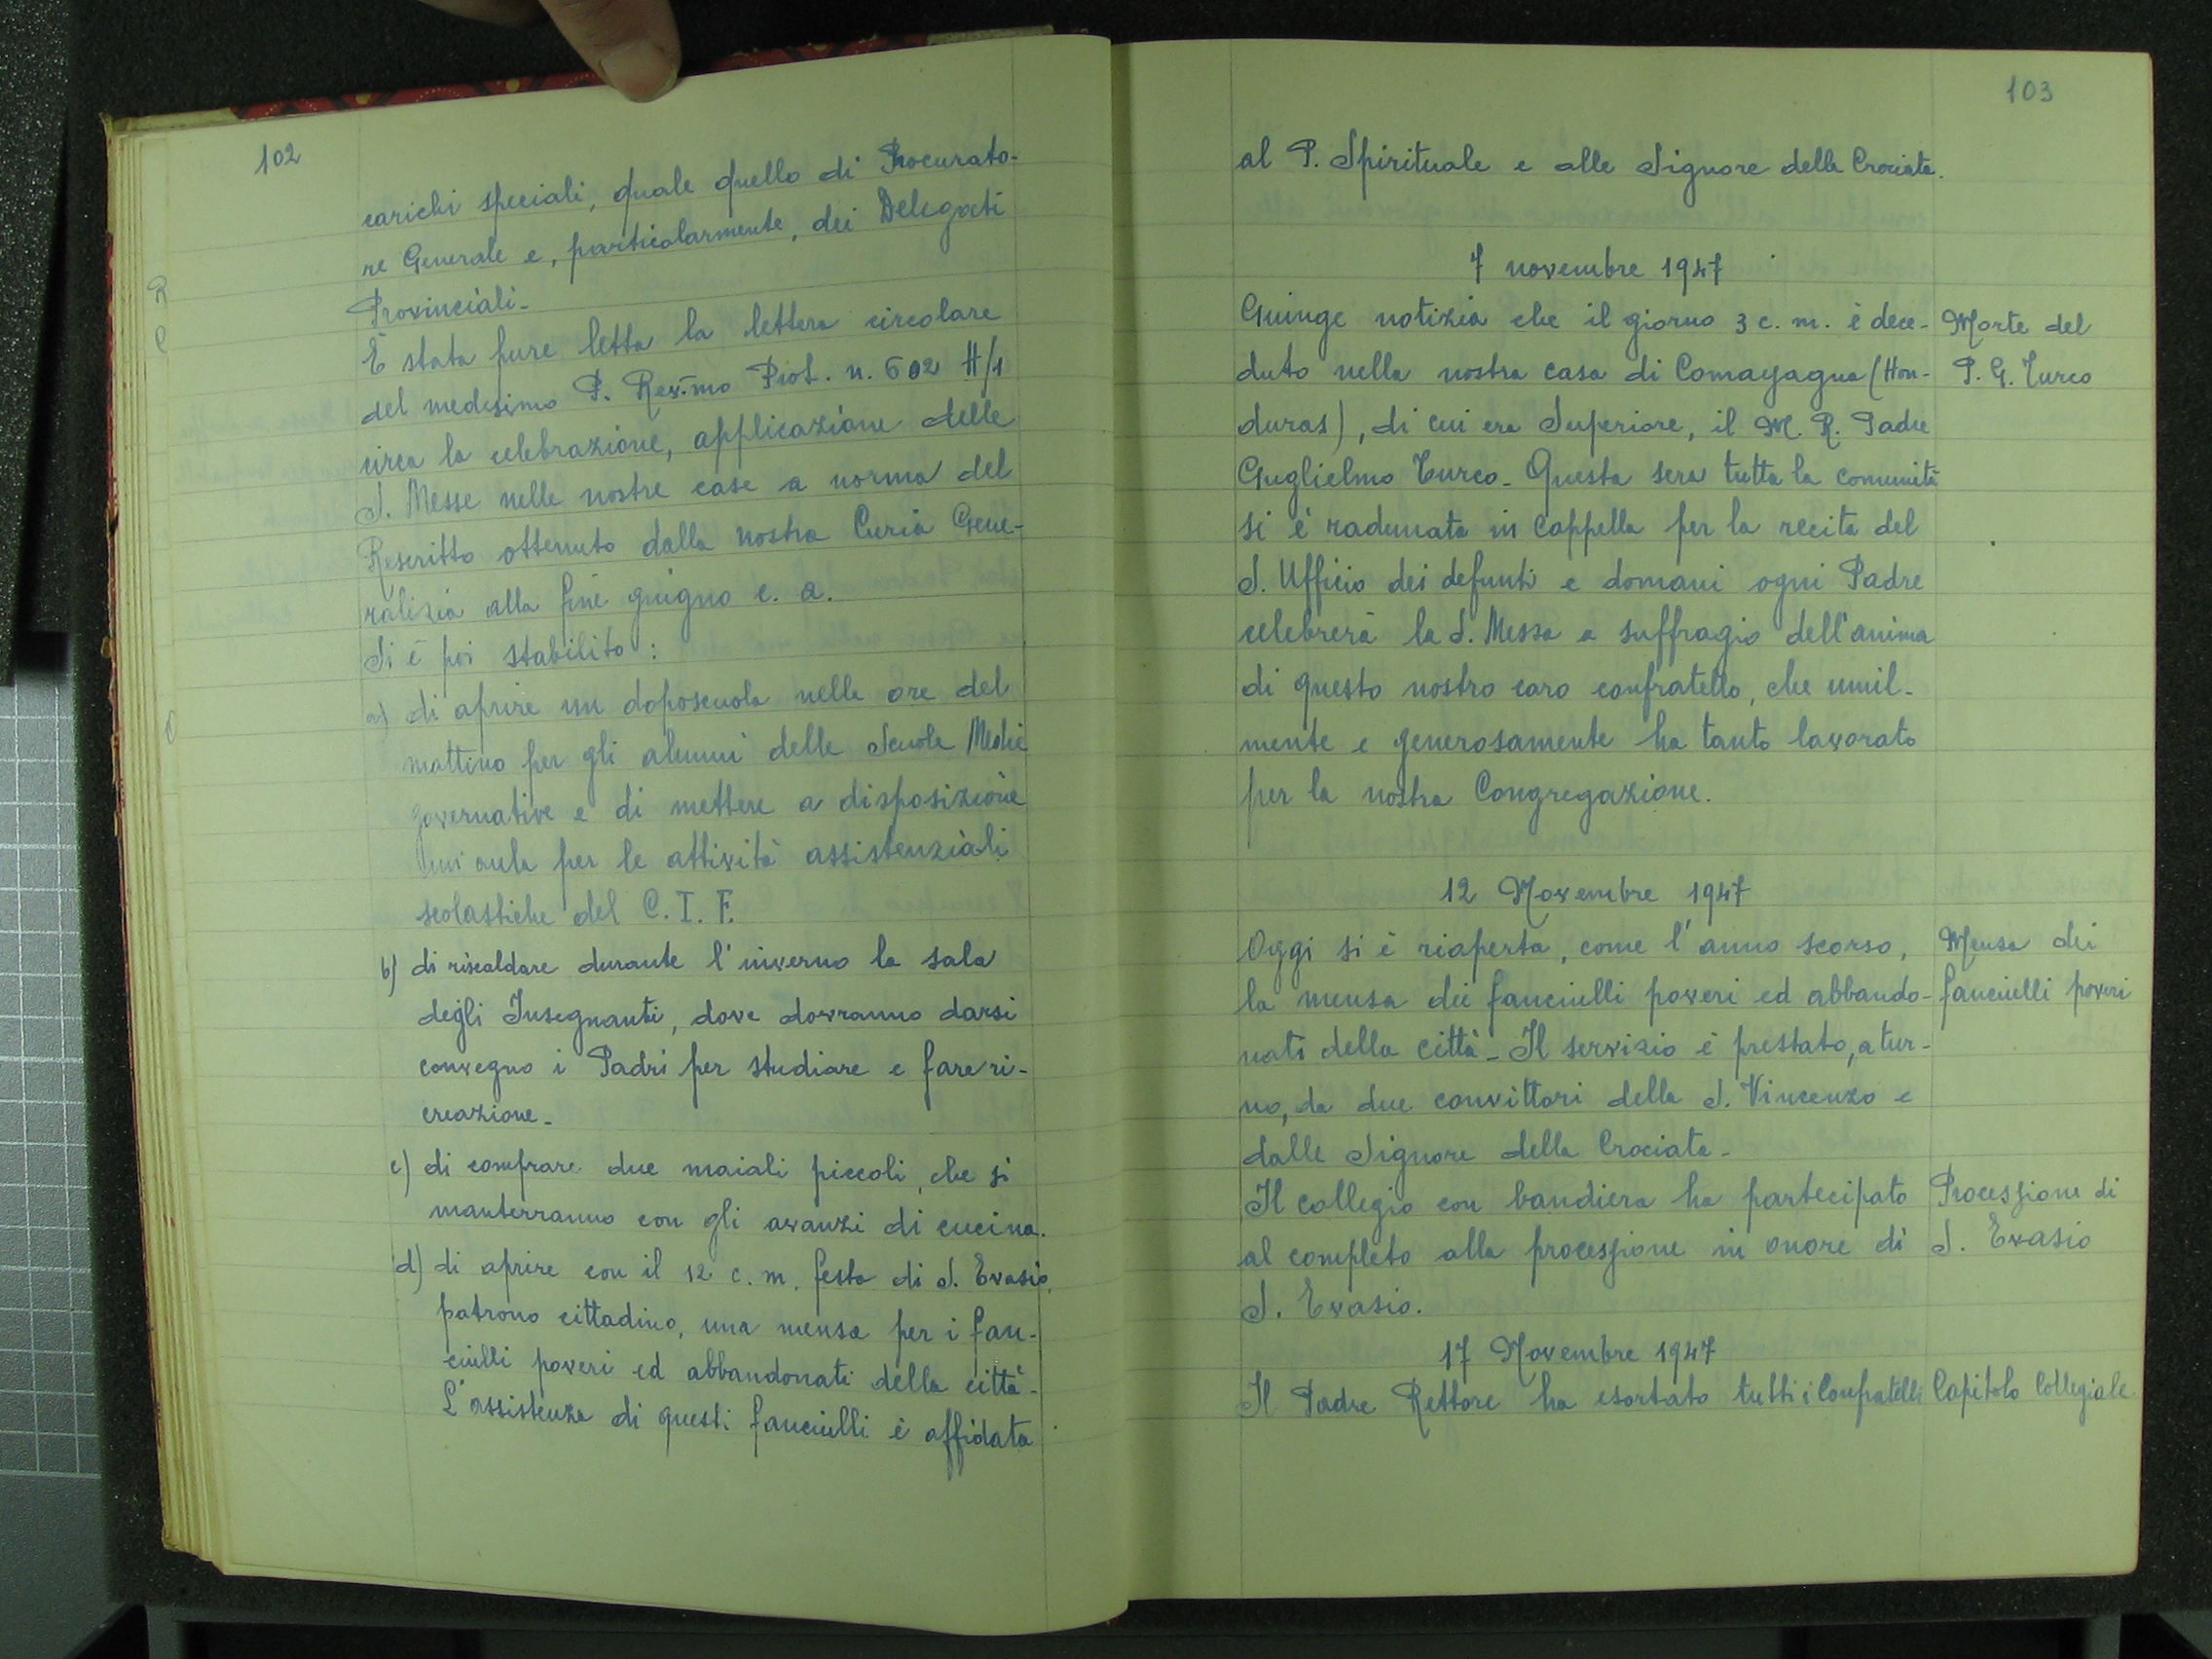 102
carichi speciali, quale quello di Procurato-
re Generale e, particolarmente, dei Delegati
Provinciali-
È stata pure letta la lettera circolare
del medesimo P. Rev.mo Prot. n. 602 H/1
circa la celebrazione, applicazione delle
S. Messe nelle nostre case a norma del
Rescritto ottenuto dalla nostra Curia Gene-
ralizia alla fine giugno c. a.
Si è poi stabilito :
a) di aprire un doposcuola nelle ore del
mattino per gli alunni delle Scuole Medie
governative e di mettere a disposizione
un'aula per le attività assistenziali
scolastiche del C. I. F.
b) di riscaldare durante l'inverno la sala
degli Insegnanti, dove dovranno darsi
convegno i Padri per studiare e fare ri-
creazione-
c) di comprare due maiali piccoli, che si
manterranno con gli avanzi di cucina.
d) di aprire con il 12 c. m. festa di S. Evasio,
patrono cittadino, una mensa per i fan-
ciulli poveri ed abbandonati della città-
L'assistenza di questi fanciulli è affidata
103
al P. Spirituale e alle Signore della Crociata.
7 novembre 1947
Giunge notizia che il giorno 3 c. m. è dece-
duto nella nostra casa di Comayagua (Hon-
duras), di cui era Superiore, il M. R. Padre
Guglielmo Turco- Questa sera tutta la comunità
si è radunata in Cappella per la recita del
S. Ufficio dei defunti e domani ogni Padre
celebrerà la S. Messa a suffragio dell'anima
di questo nostro caro confratello, che umil-
mente e generosamente ha tanto lavorato
per la nostra Congregazione.
Morte del
P. G. Turco
12 Novembre 1947
Oggi si è riaperta, come l'anno scorso,
la mensa dei fanciulli poveri ed abbando-
nati della città- Il servizio è prestato, a tur-
no, da due convittori della S. Vincenzo e
dalle Signore della Crociata-
Mensa dei
fanciulli poveri
Il collegio con bandiera ha partecipato
al completo alla processione in onore di
S. Evasio.
Processione di
S. Evasio
17 Novembre 1947
Il Padre Rettore ha esortato tutti i Confratelli
Capitolo Collegiale